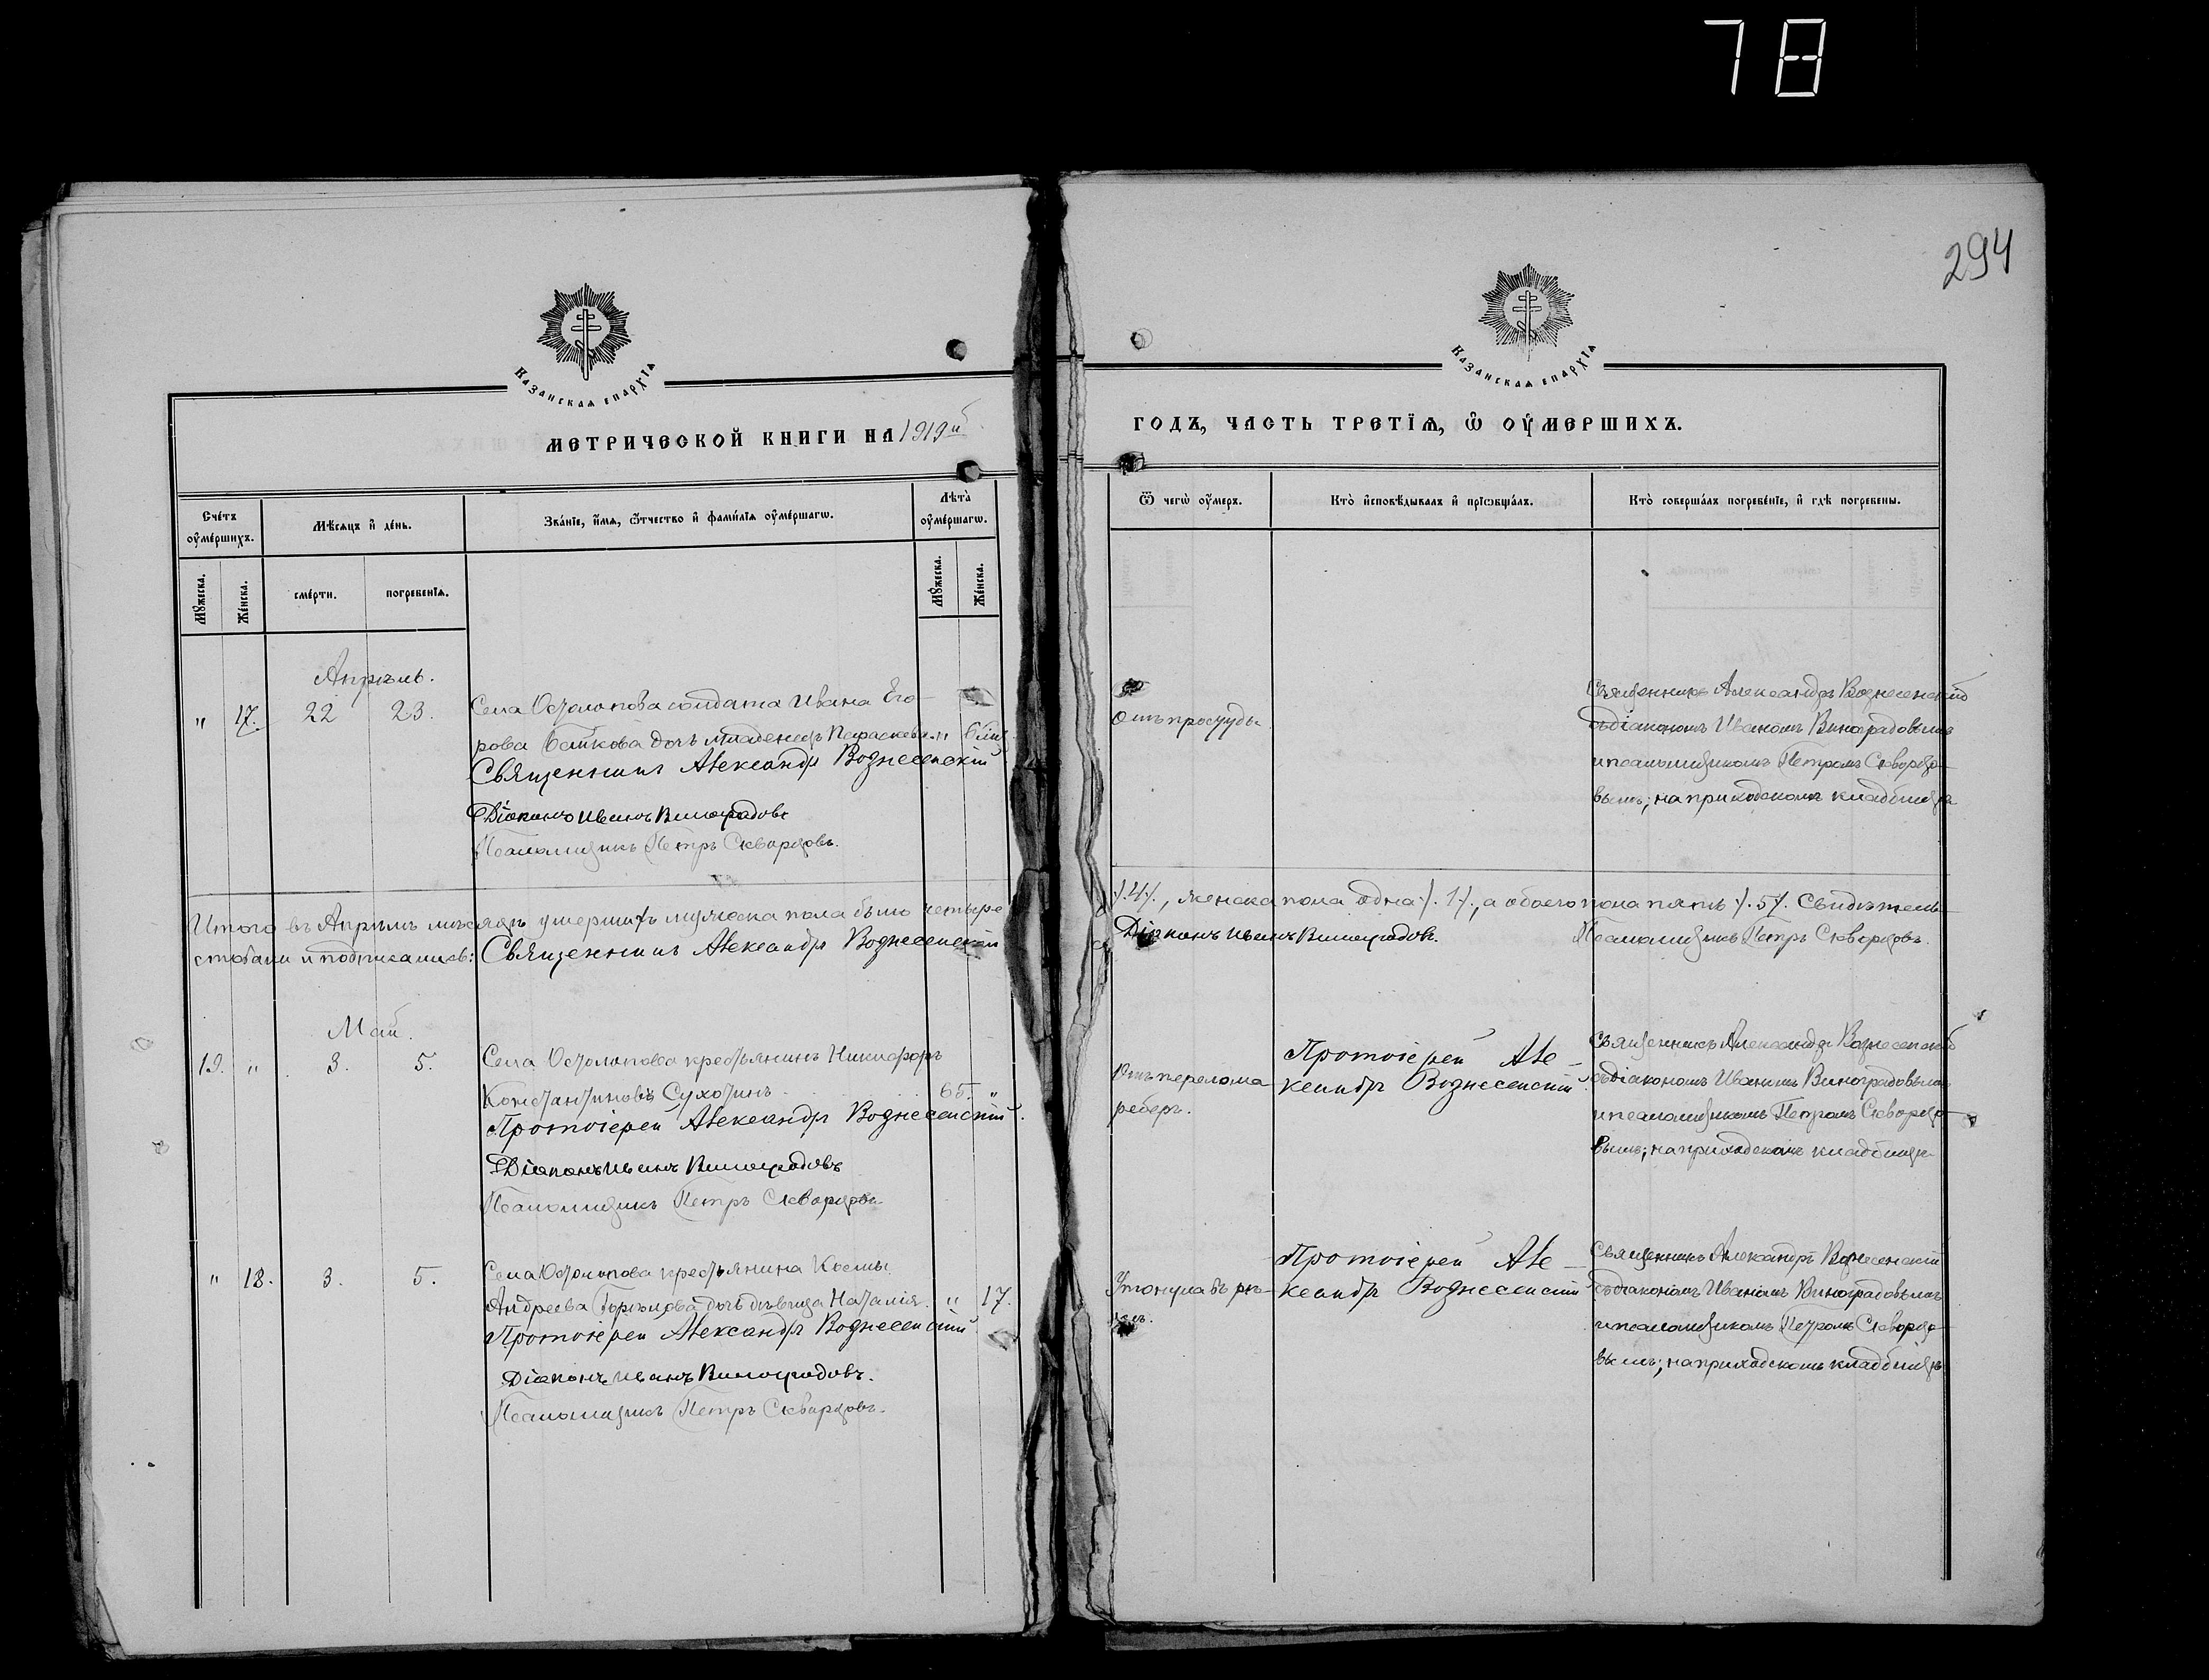 78
294
КАЗАНСКАѦ ЕПАРХЇѦ
КАЗАНСКАѦ ЕПАРХЇѦ
МЕТРИЧЕСКОЙ КНИГИ НА 1919й
ГОДЪ, ЧАСТЬ ТРЕТЇѦ, Ѽ ОУМЕРШИХЪ.
Сче́тъ оу҆ме́ршихъ.
Мѣ́сѧцъ и҆ де́нь.
Зва́нїе, и҆́мѧ, ѻ҆́тчество и҆ фами́лїѧ оу҆ме́ршагѡ.
Лѣта̀ оу҆ме́ршагѡ.
Ѿ чегѡ̀ оу҆́меръ.
Кто̀ и҆сповѣ́дывалъ и҆ прїѡбща́лъ.
Кто̀ соверша́лъ погребе́нїе, и҆ гдѣ̀ погребены.
Мꙋ́жеска.
Же́нска.
сме́рти.
погребе́нїѧ.
Мꙋ́жеска.
Же́нска.
Апрѣль.
" 17. 22 23.
Села Остолопова солдата Ивана Его-
рова дочь младенецъ Параскева "
Священникъ Александръ Вознесенскій
Діаконъ Иванъ Виноградовъ
Псаломщикъ Петръ Скворцовъ.
Отъ простуды
Священникъ Александръ Вознесенскій
съ діакономъ Иваномъ Виноградовымъ
и псаломщикомъ Петромъ Скворцо-
вымъ; на приходскомъ кладбищѣ
Итого въ Апрѣлѣ мѣсяцѣ умершихъ мужеска пола было четыре
/.4/., женска пола одна /.1/., а обоего пола пять /.5/. Свидѣтель-
ствовали и подписались: Священникъ Александръ Вознесенскій
Діаконъ Иванъ Виноградовъ. Псаломщикъ Петръ Скворцовъ.
Май.
19. " 3. 5.
Села Остолопова крестьянинъ Никифоръ
Константиновъ Сухотинъ. 65. "
Протоіерей Александръ Вознесенскій.
Діаконъ Иванъ Виноградовъ
Псаломщикъ Петръ Скворцовъ.
Отъ перелома
реберъ.
Протоіерей Але-
ксандръ Вознесенскій
Священникъ Александръ Вознесенскій
съ діакономъ Иваномъ Виноградовымъ
и псаломщикомъ Петромъ Скворцо-
вымъ; на приходскомъ кладбищѣ
" 18. 3. 5.
Села Остолопова крестьянина Космы
Андреева дочь дѣвица Наталія. " 17.
Протоіерей Александръ Вознесенскій
Діаконъ Иванъ Виноградовъ.
Псаломщикъ Петръ Скворцовъ.
Утонула въ рѣ-
кѣ.
Протоіерей Але-
ксандръ Вознесенскій
Священникъ Александръ Вознесенскій
съ діакономъ Иваномъ Виноградовымъ
и псаломщикомъ Петромъ Скворцо-
вымъ; на приходскомъ кладбищѣ